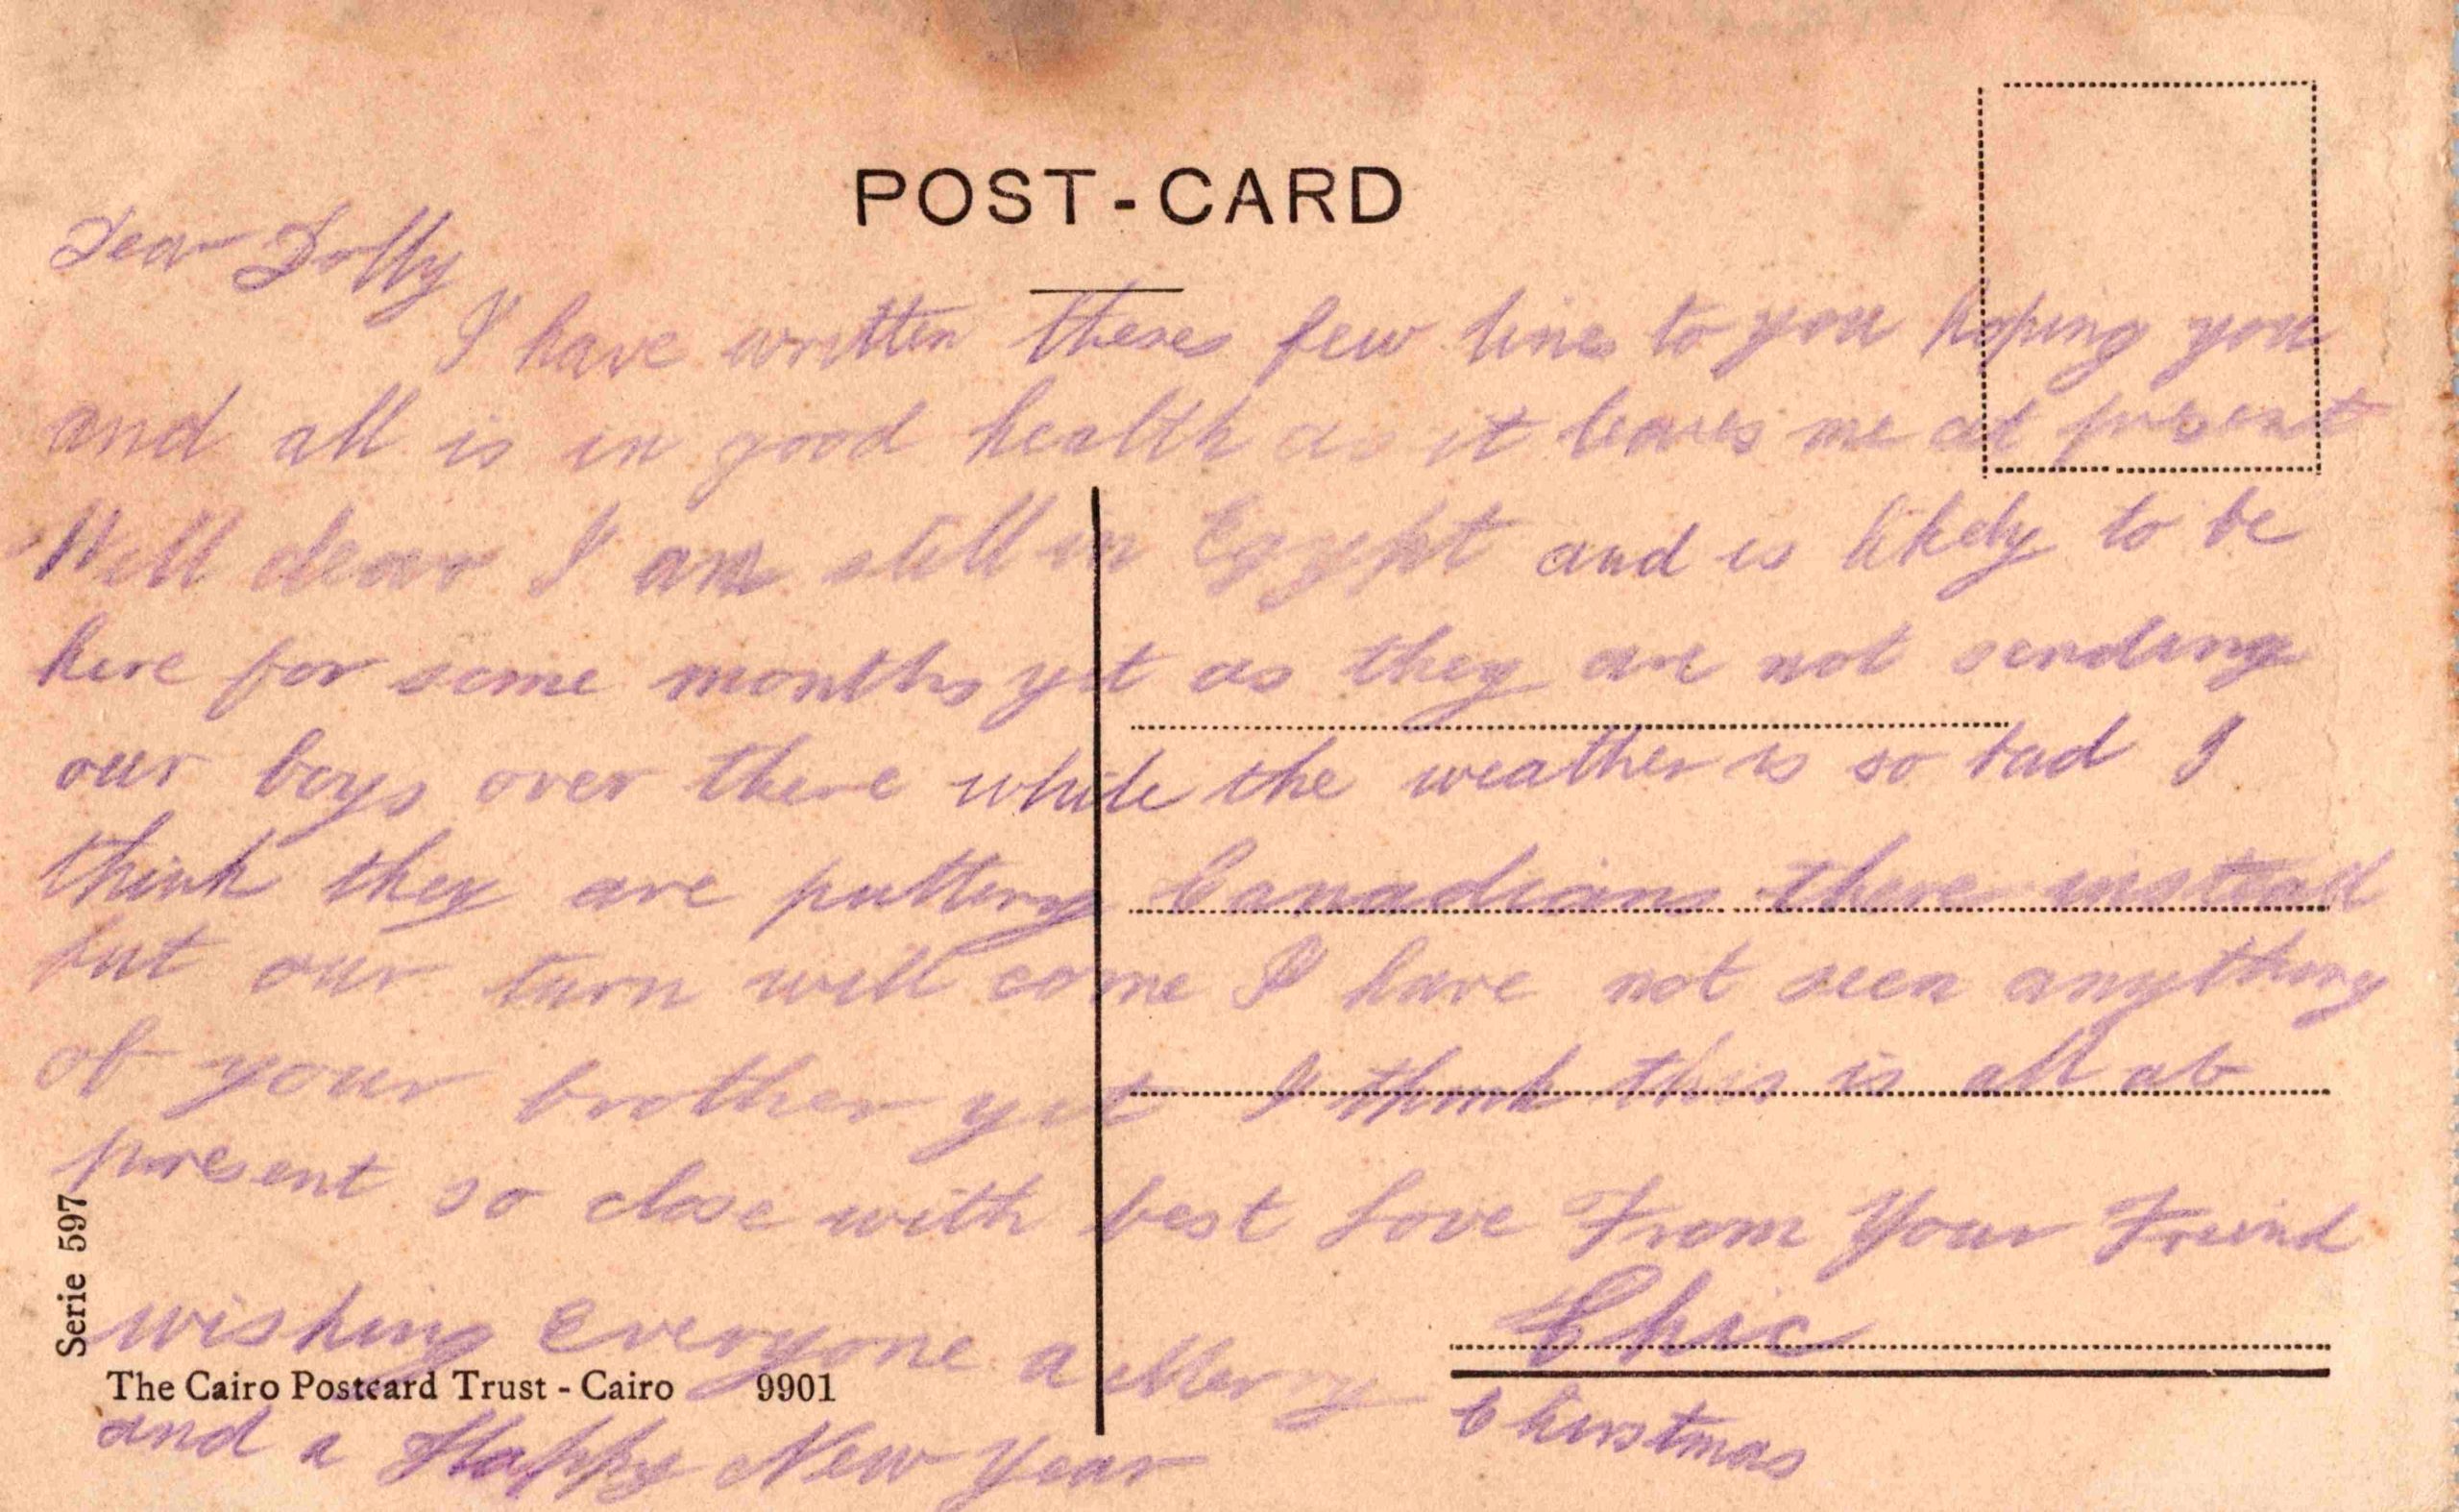 POST-CARD
Dear Dolly
I have written theses few lines to you hoping you
and all is in good health as it leaves me at present
Well dear I am still in Egypt and is likely to be
here for some months yet as they are not sending
our boys over there while the weather is so bad I
think they are putting Canadians there instead
but our turn will come I have not seen anything
of your brother yet I think this is all at
present so close with best Love From Your Freind
Chic
wishing everyone a Merry Christmas
and a Happy New Year
Serie 597
The Cairo Postcard Trust - Cairo 9901